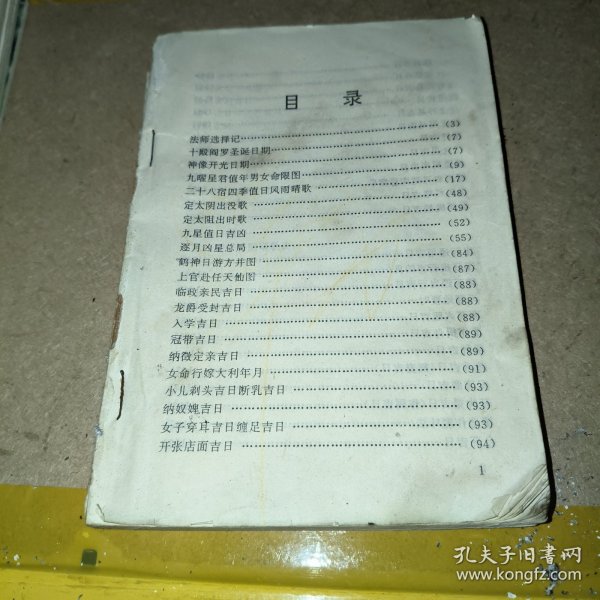 目 录
法师选择记……………………………………(3)
十殿阎罗圣诞日期……………………………(7)
神像开光日期…………………………………(7)
九曜星君值年男女命限图……………………(9)
二十八宿四季值日风雨晴歌…………………(17)
定太阴出没歌…………………………………(48)
定太阳出时歌…………………………………(49)
九星值日吉凶…………………………………(52)
逐月凶星总局…………………………………(55)
鹤神日游方并图………………………………(84)
上官赴任天仙图………………………………(87)
临政亲民吉日…………………………………(88)
龙爵受封吉日…………………………………(88)
入学吉日………………………………………(88)
冠带吉日………………………………………(89)
纳徵定亲吉日…………………………………(89)
女命行嫁大利年月……………………………(91)
小儿剃头吉日断乳吉日………………………(93)
纳奴婢吉日……………………………………(93)
女子穿耳吉日缠足吉日………………………(93)
开张店面吉日…………………………………(94)
1
孔夫子旧书网
www.kongfz.com